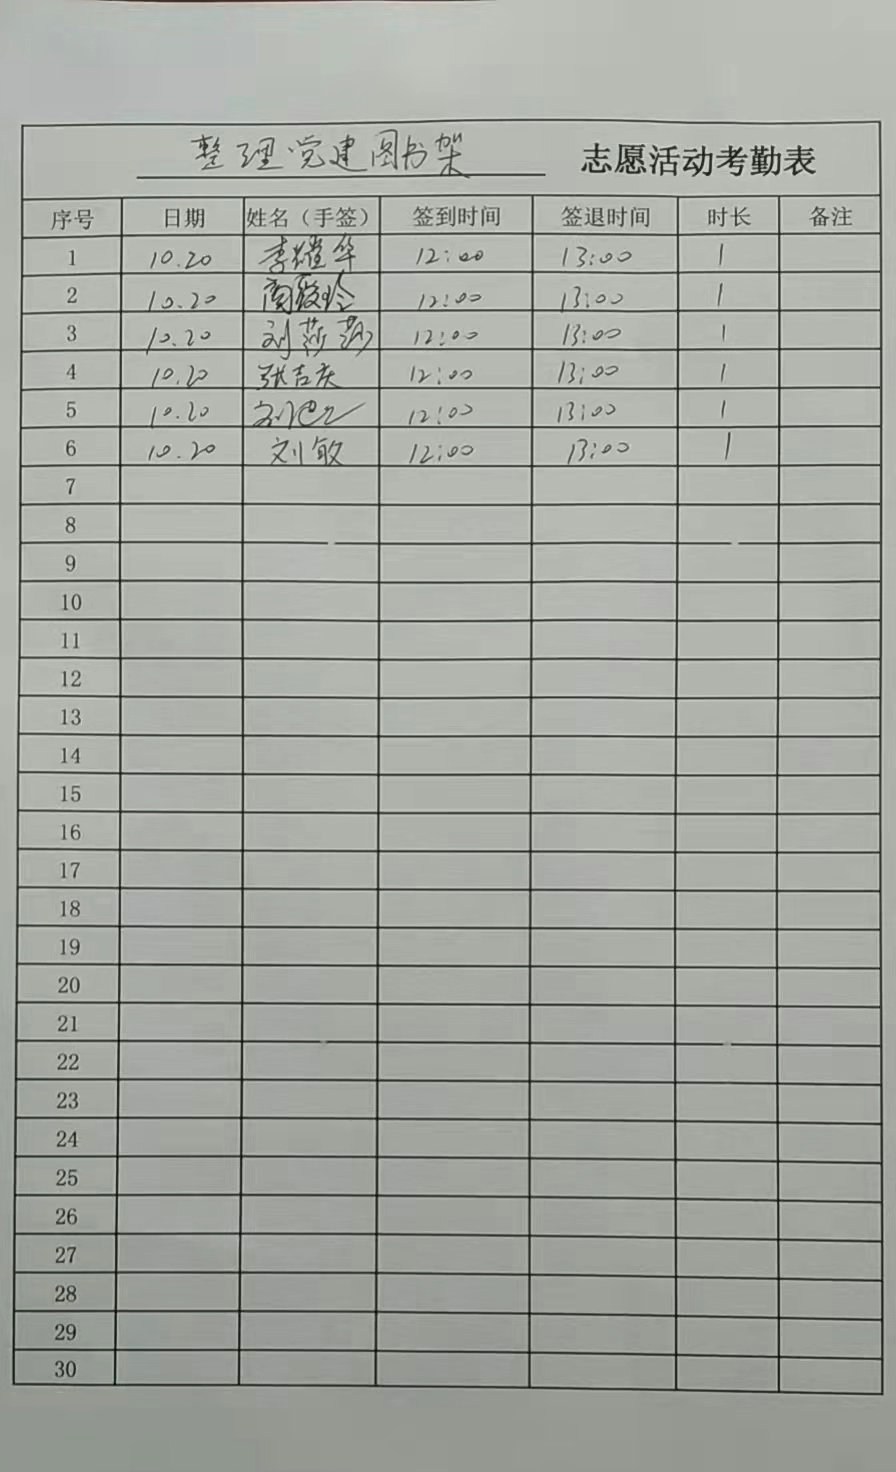 整理党建图书架 志愿活动考勤表
序号 日期 姓名（手签） 签到时间 签退时间 时长 备注
1 10.20 李耀华 12:00 13:00 1
2 10.20 12:00 13:00 1
3 10.20 刘莎莎 12:00 13:00 1
4 10.20 张吉庆 12:00 13:00 1
5 10.20 12:00 13:00 1
6 10.20 刘敏 12:00 13:00 1
7
8
9
10
11
12
13
14
15
16
17
18
19
20
21
22
23
24
25
26
27
28
29
30